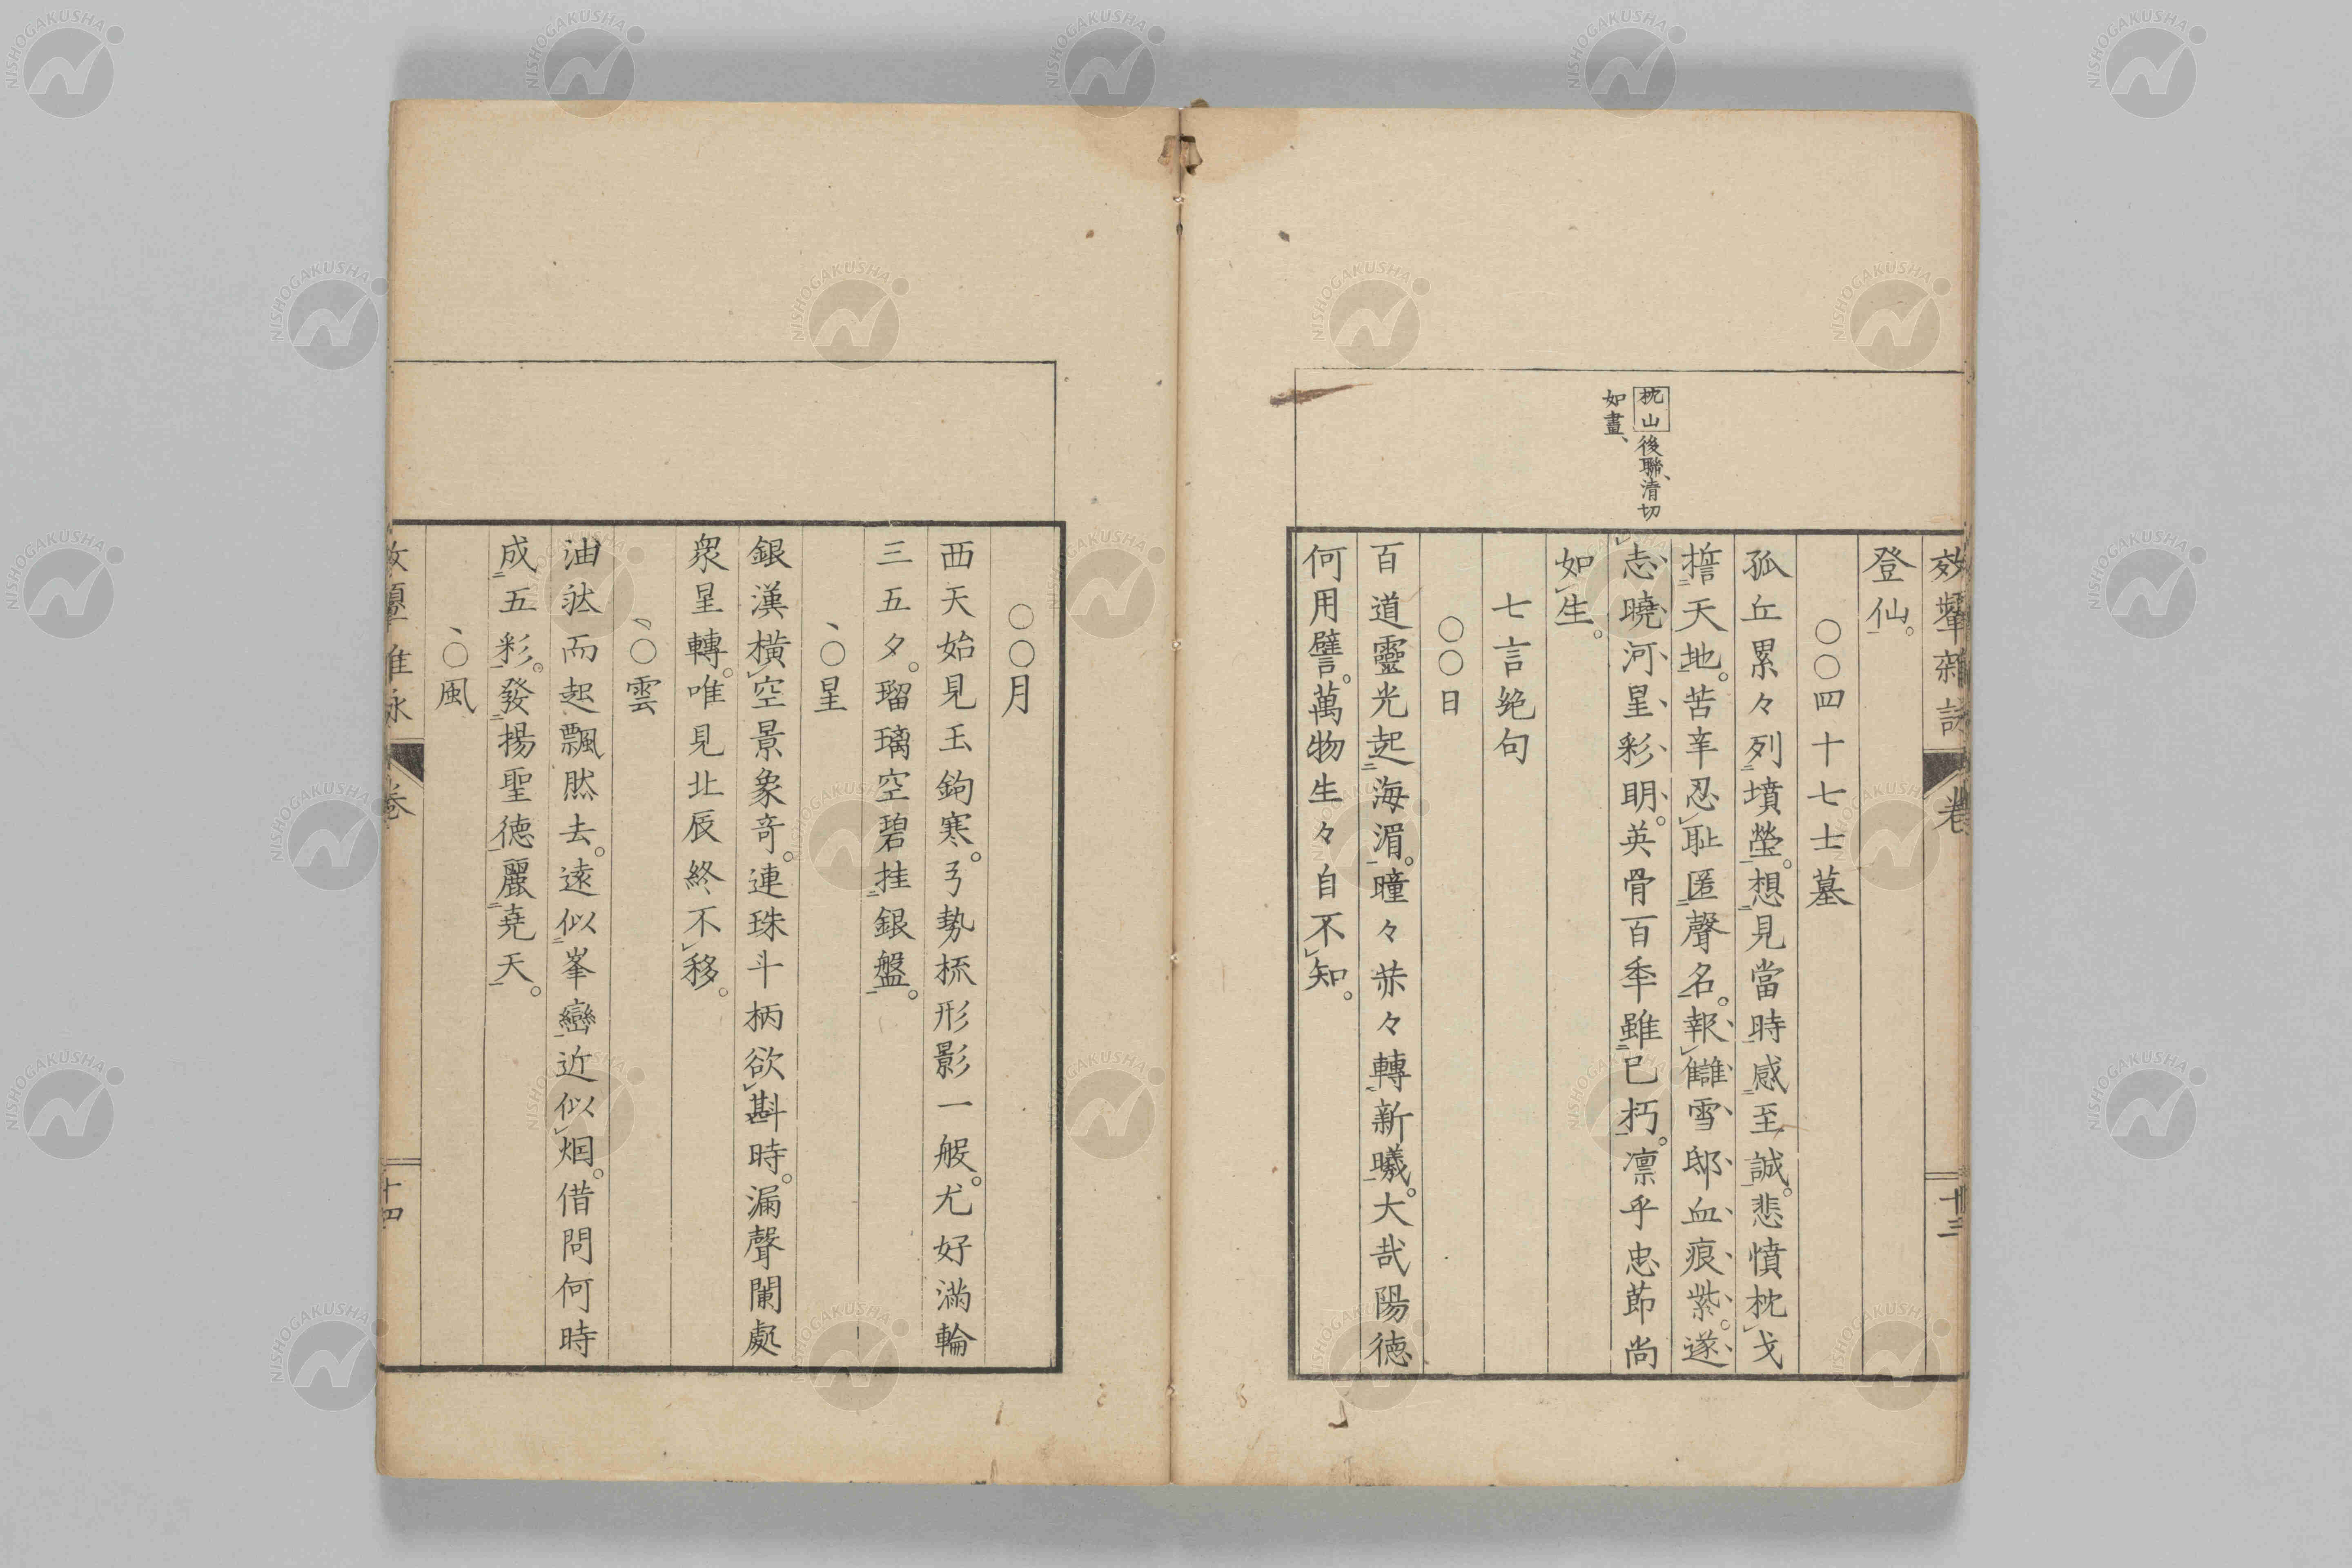 效顰雜詠 卷 十三
登仙。
〇〇四十七士墓
孤丘累々列墳塋。想見當時感至誠。悲憤枕戈
誓天地。苦辛忍恥匿聲名。報讎雪邸血痕紫。遂
志曉河星彩明。英骨百年雖已朽。凛乎忠節尚
如生。
枕山 後聯、清切
如畫、
七言絶句
〇〇日
百道靈光起海湄。曈々赫々轉新曦。大哉陽德
何用譬。萬物生々自不知。
〇〇月
西天始見玉鉤寒。弓勢梳形影一般。尤好滿輪
三五夕。瑠璃空碧挂銀盤。
、〇星
銀漢橫空景象奇。連珠斗柄欲斟時。漏聲闌處
衆星轉。唯見北辰終不移。
、〇雲
油然而起飄然去。遠似峯巒近似烟。借問何時
成五彩。發揚聖德麗堯天。
、〇風
效顰雜詠 卷 十四
NISHOGAKUSHA